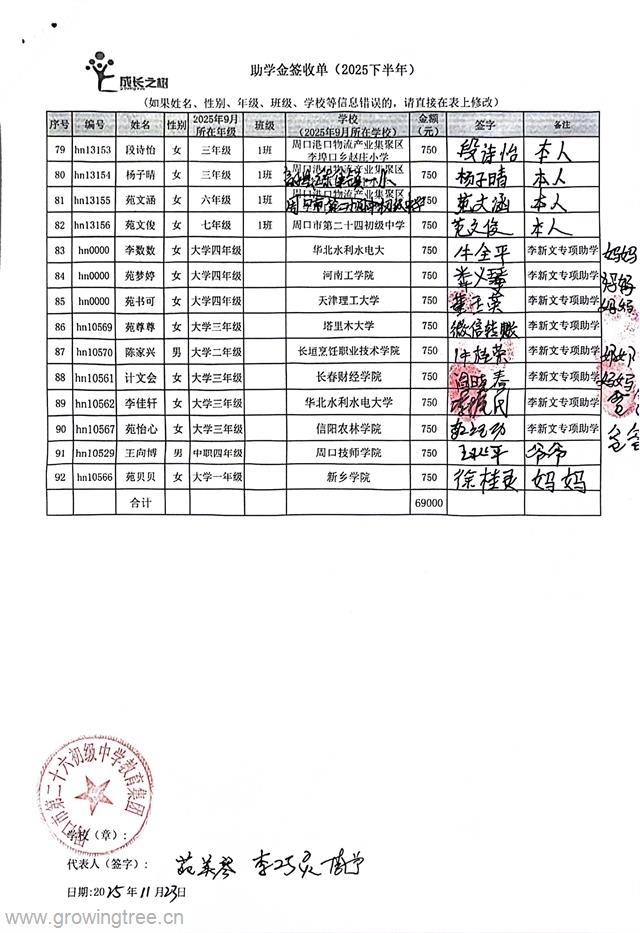 成长之树
助学金签收单（2025下半年）
（如果姓名、性别、年级、班级、学校等信息错误的，请直接在表上修改）
序号 编号 姓名 性别 2025年9月所在年级 班级 学校（2025年9月所在学校） 金额（元） 签字 备注
79 hn13153 段诗怡 女 三年级 1班 周口港口物流产业集聚区李埠口乡赵庄小学 750 段诗怡 本人
80 hn13154 杨子晴 女 三年级 1班 周口港口物流产业集聚区 750 杨子晴 本人
81 hn13155 苑文涵 女 六年级 1班 周口港口物流产业集聚区 周口市第二十四初级中学 750 苑文涵 本人
82 hn13156 苑文俊 女 七年级 1班 周口市第二十四初级中学 750 苑文俊 本人
83 hn0000 李数数 女 大学四年级 华北水利水电大 750 牛全平 李新文专项助学 妈妈
84 hn0000 苑梦婷 女 大学四年级 河南工学院 750 李新文专项助学 妈妈
85 hn0000 苑书可 女 大学四年级 天津理工大学 750 李新文专项助学 妈妈
86 hn10569 苑尊尊 女 大学三年级 塔里木大学 750 微信转账 李新文专项助学
87 hn10570 陈家兴 男 大学二年级 长垣烹饪职业技术学院 750 李新文专项助学 妈妈
88 hn10561 计文会 女 大学三年级 长春财经学院 750 李新文专项助学 妈妈
89 hn10562 李佳轩 女 大学三年级 华北水利水电大学 750 李新文专项助学
90 hn10567 苑怡心 女 大学三年级 信阳农林学院 750 李新文专项助学 爸爸
91 hn10529 王向博 男 中职四年级 周口技师学院 750 爷爷
92 hn10566 苑贝贝 女 大学一年级 新乡学院 750 徐桂灵 妈妈
合计 69000
周口市第二十六初级中学教育集团
学校（章）：
代表人（签字）： 李巧灵
日期：2025年11月23日
www.growingtree.cn